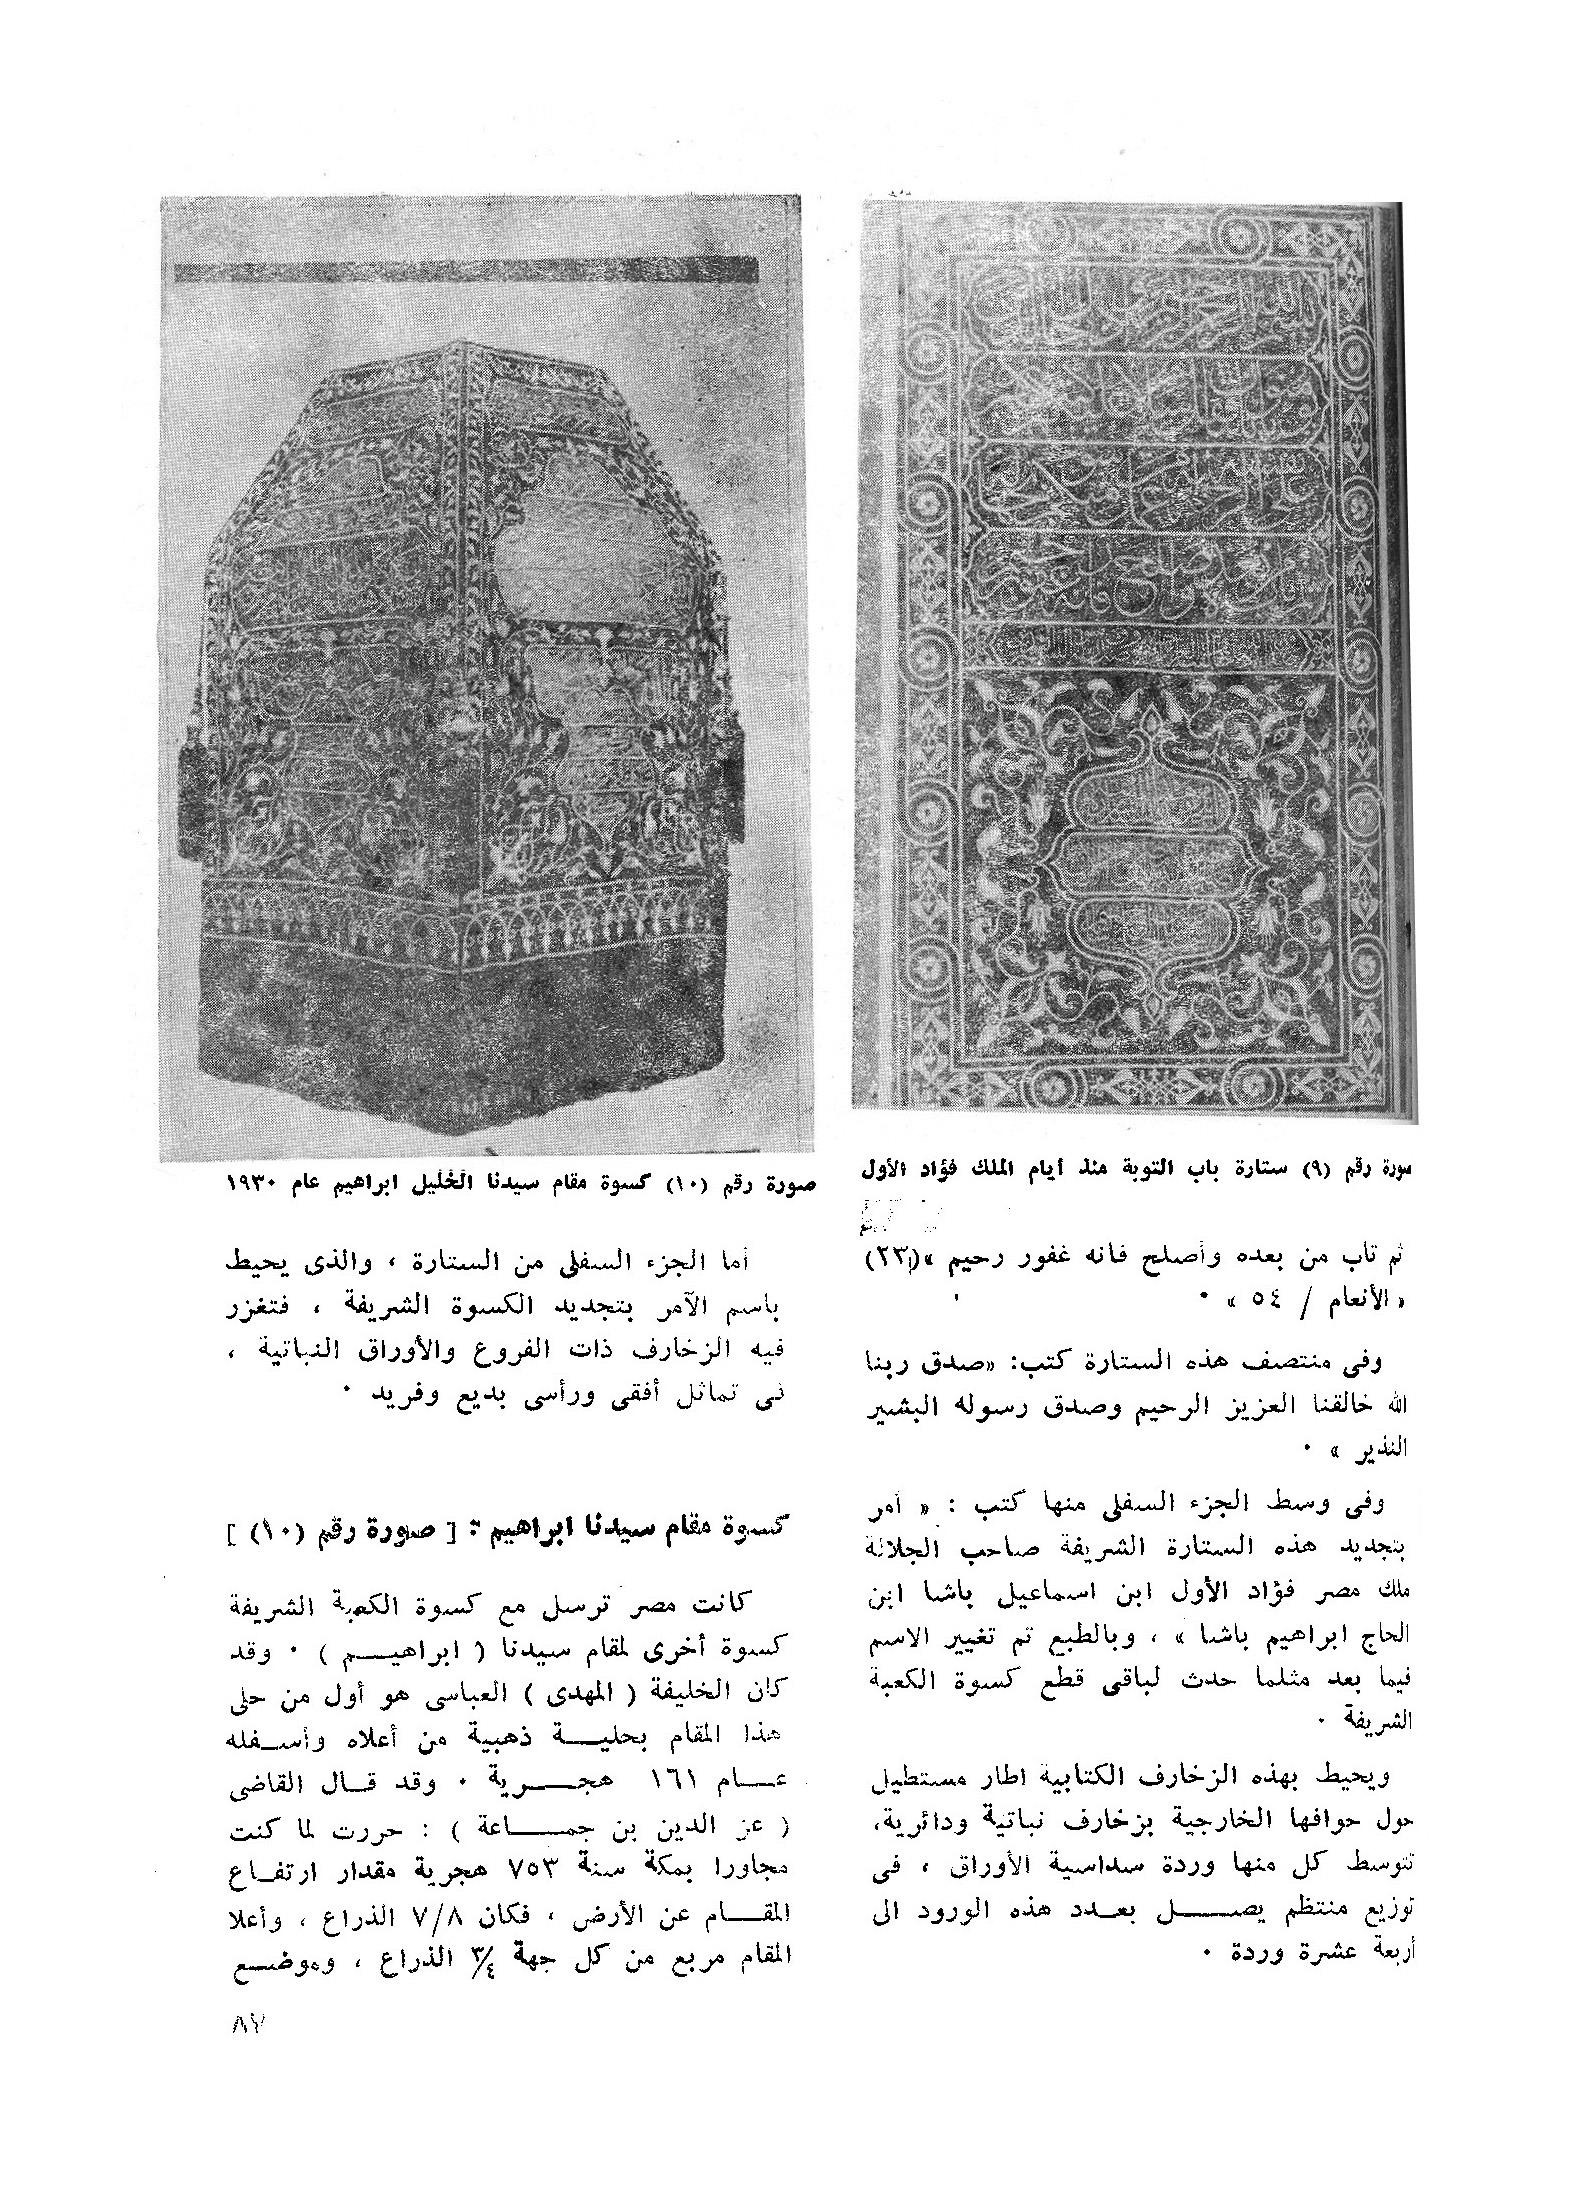 صورة رقم (٩) ستارة باب التوبة منذ أيام الملك فؤاد الأول
ثم تاب من بعده وأصلح فانه غفور رحيم »(٢٣)
« الأنعام / ٥٤ » ٠
وفى منتصف هذه الستارة كتب: «صدق ربنا
الله خالقنا العزيز الرحيم وصدق رسوله البشير
النذير » ٠
وفى وسط الجزء السفلى منها كتب : « أمر
بتجديد هذه الستارة الشريفة صاحب الجلالة
ملك مصر فؤاد الأول ابن اسماعيل باشا ابن
الحاج ابراهيم باشا » ، وبالطبع تم تغيير الاسم
فيما بعد مثلما حدث لباقى قطع كسوة الكعبة
الشريفة ٠
ويحيط بهذه الزخارف الكتابية اطار مستطيل
حول حوافها الخارجية بزخارف نباتية ودائرية،
تتوسط كل منها وردة سداسية الأوراق ، فى
توزيع منتظم يصـــل بعـدد هذه الورود الى
أربعة عشرة وردة ٠
صورة رقم (١٠) كسوة مقام سيدنا الخليل ابراهيم عام ١٩٣٠
أما الجزء السفلى من الستارة ، والذى يحيط
باسم الآمر بتجديد الكسوة الشريفة ، فتغزر
فيه الزخارف ذات الفروع والأوراق النباتية ،
فى تماثل أفقى ورأسى بديع وفريد ٠
كسوة مقام سيدنا ابراهيم : [ صورة رقم (١٠) ]
كانت مصر ترسل مع كسوة الكعبة الشريفة
كسوة أخرى لمقام سيدنا ( ابراهيـــم ) ٠ وقد
كان الخليفة ( المهدى ) العباسى هو أول من حلى
هذا المقام بحليـــة ذهبية من أعلاه وأسـفله
عـــام ١٦١ هجـــرية ٠ وقد قـال القاضى
( عز الدين بن جمـــاعة ) : حررت لما كنت
مجاورا بمكة سنة ٧٥٣ هجرية مقدار ارتفـاع
المقـــام عن الأرض ، فكان ٧/٨ الذراع ، وأعلا
المقام مربع من كل جهة ٣/٤ الذراع ، وموضـع
٨٧